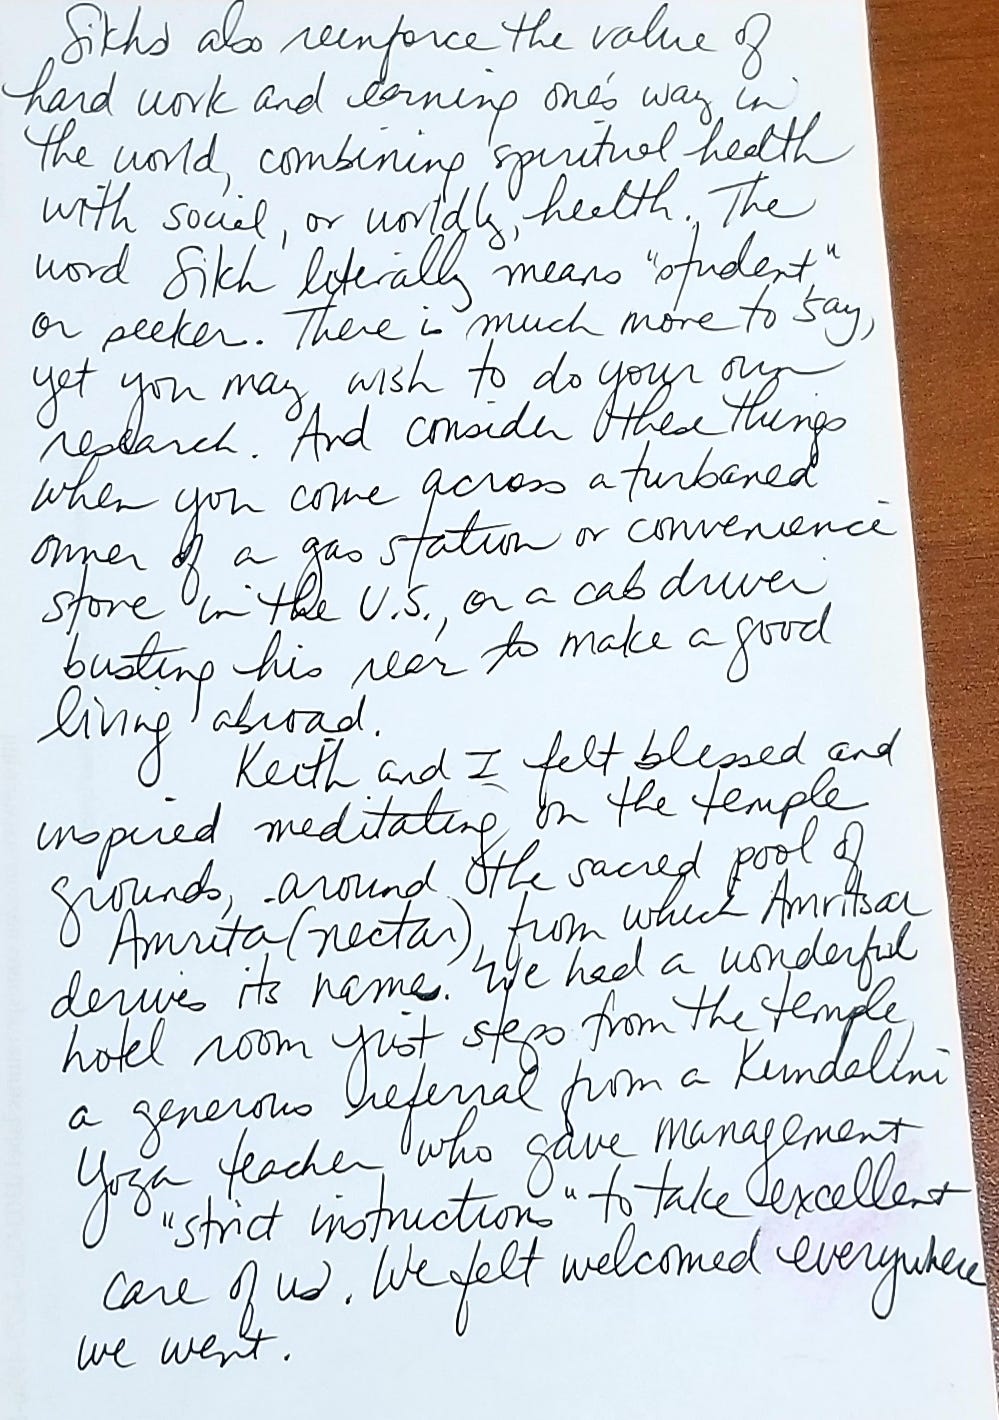 Sikhs also reinforce the value of
hard work and earning one's way in
the world, combining spiritual health
with social, or worldly, health. The
word Sikh literally means "student"
or seeker. There is much more to say,
yet you may wish to do your own
research. And consider these things
when you come across a turbaned
owner of a gas station or convenience
store in the U.S., or a cab driver
busting his rear to make a good
living abroad.
Keith and I felt blessed and
inspired meditating on the temple
grounds, around the sacred pool of
Amrita (nectar), from which Amritsar
derives its name. We had a wonderful
hotel room just steps from the temple,
a generous referral from a Kundalini
Yoga teacher who gave management
"strict instructions" to take excellent
care of us. We felt welcomed everywhere
we went.